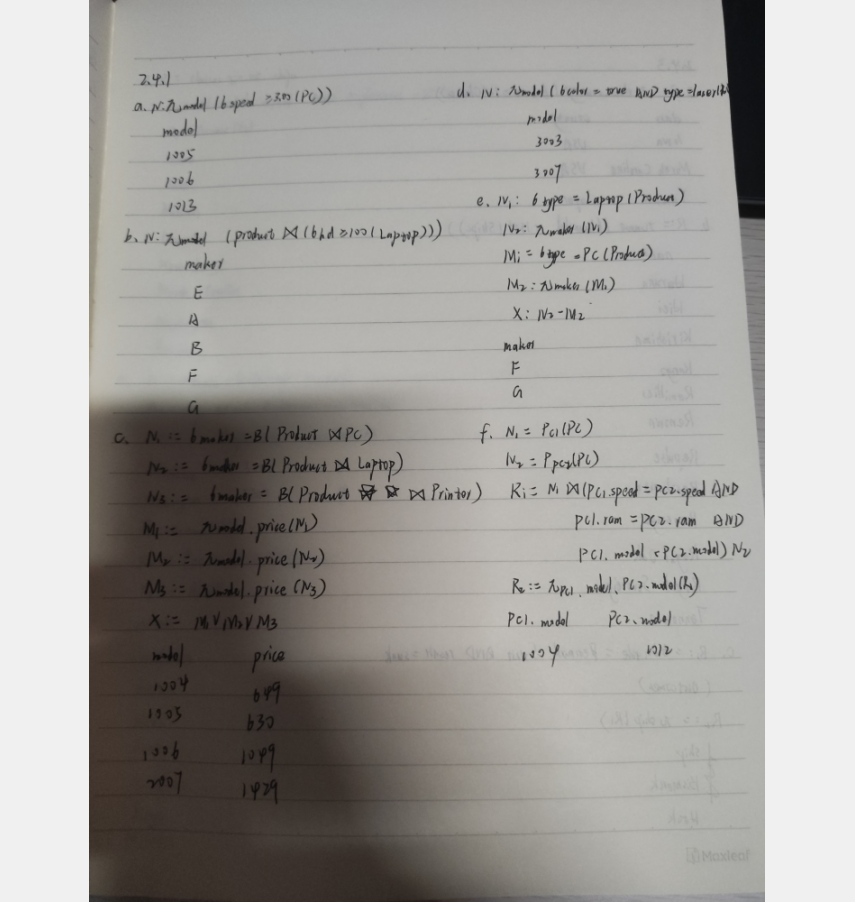 2.4.1
a. N: π model (σ speed ≥ 3.00 (PC))
model
1005
1006
1013
b. N: π model (product ⋈ (σ hd ≥ 100 (Laptop)))
maker
E
A
B
F
G
c. N1 := σ maker = B( Product ⋈ PC)
N2 := σ maker = B( Product ⋈ Laptop)
N3 := σ maker = B( Product ⋈ Printer)
M1 := π model. price (N1)
M2 := π model. price (N2)
M3 := π model. price (N3)
X := M1 ∨ M2 ∨ M3
model price
1004 649
1005 630
1006 1049
2007 1429
d. N: π model ( σ color = true AND type = laser
model
3003
3007
e. N1: σ type = Laptop (Product)
N2: π maker (N1)
M1 = σ type = PC (Product)
M2: π maker (M1)
X: N2 - M2
maker
F
G
f. N1 = ρ PC1 (PC)
N2 = ρ PC2 (PC)
R1 = N1 ⋈ (PC1.speed = PC2.speed AND
PC1.ram = PC2.ram AND
PC1.model < PC2.model) N2
R2 := π PC1.model, PC2.model (R1)
PC1.model PC2.model
1004 1012
Maxleaf